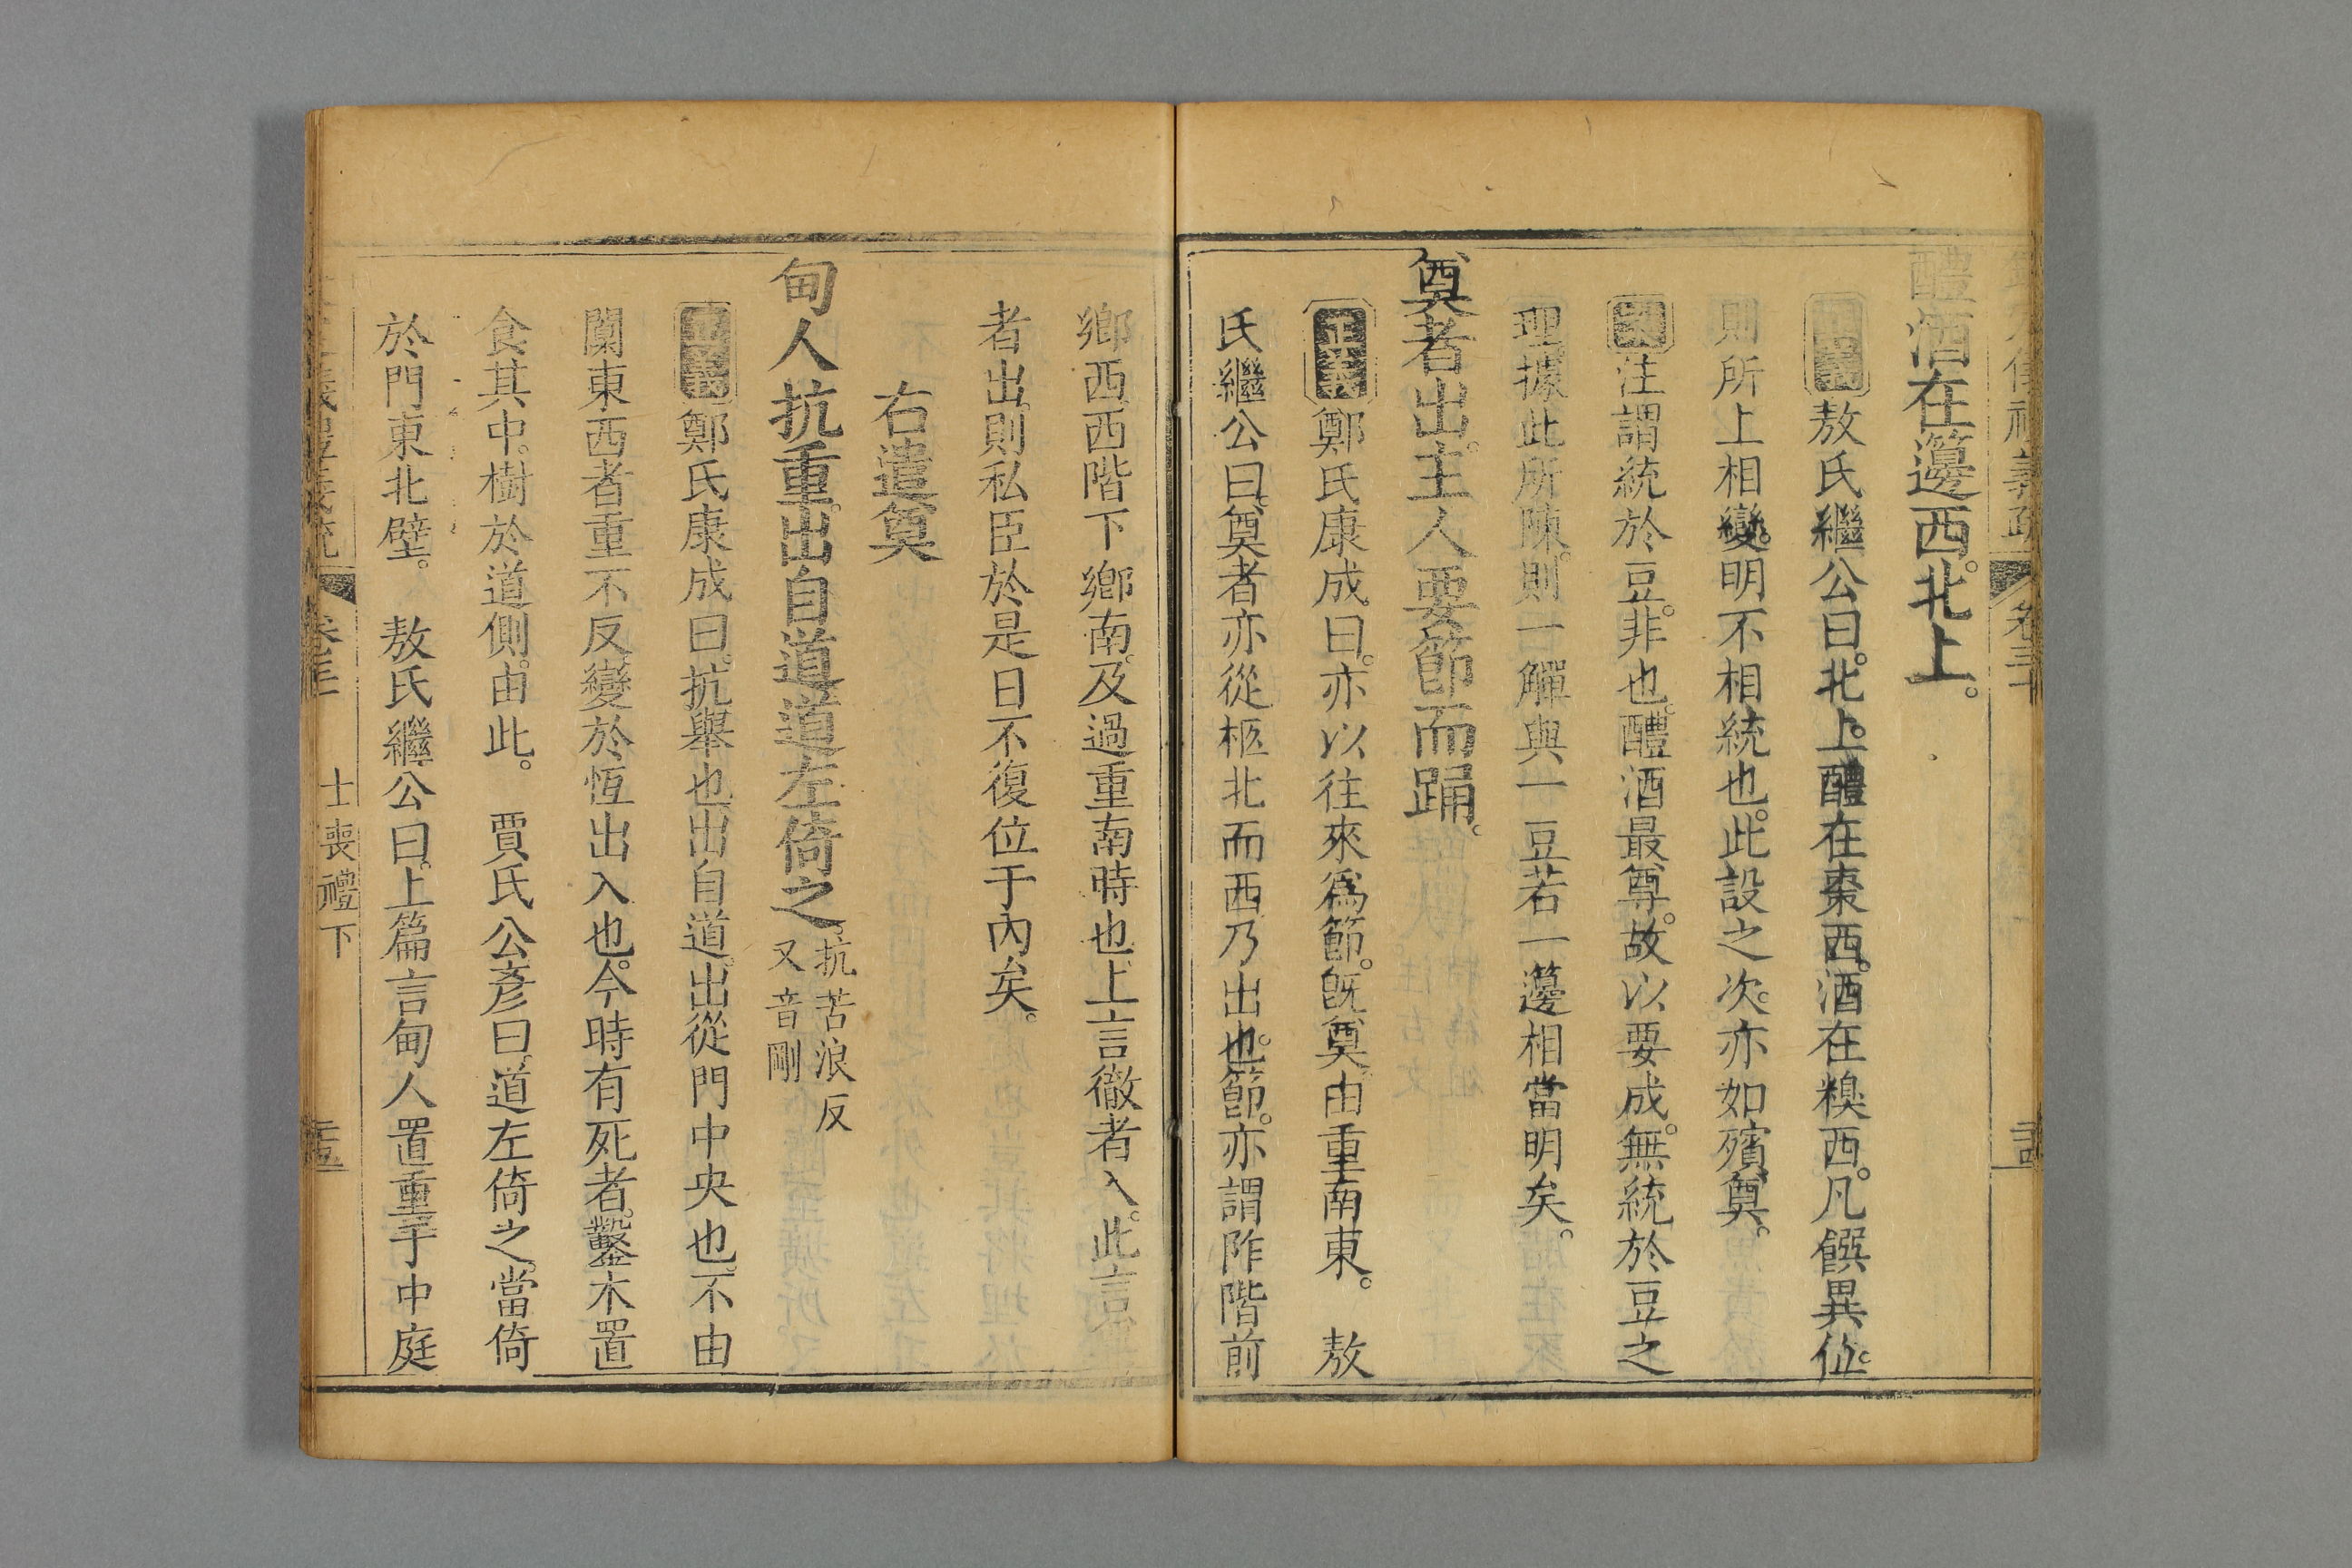 醴酒在籩西。北上。
正義 敖氏繼公曰。北上。醴在棗西。酒在糗西。凡饌異位。
則所上相變。明不相統也。此設之次。亦如殯奠。
案 注謂統於豆。非也。醴酒最尊。故以要成。無統於豆之
理據此所陳。則一觶與一豆若一籩相當明矣。
奠者出。主人要節而踊。
正義 鄭氏康成曰。亦以往來爲節。旣奠。由重南東。 敖
氏繼公曰。奠者亦從柩北而西乃出也。節。亦謂阼階前
鄉西。西階下鄉南。及過重南時也。上言徹者入。此言
者出。則私臣於是日不復位于內矣。
右遣奠
甸人抗重。出自道。道左倚之。抗苦浪反
又音剛
正義 鄭氏康成曰。抗。舉也。出自道。出從門中央也。不由
闑東西者。重不反變於恆出入也。今時有死者。鑿木置
食其中。樹於道側。由此。 賈氏公彥曰。道左倚之。當倚
於門東北壁。 敖氏繼公曰。上篇言甸人置重于中庭
士喪禮下